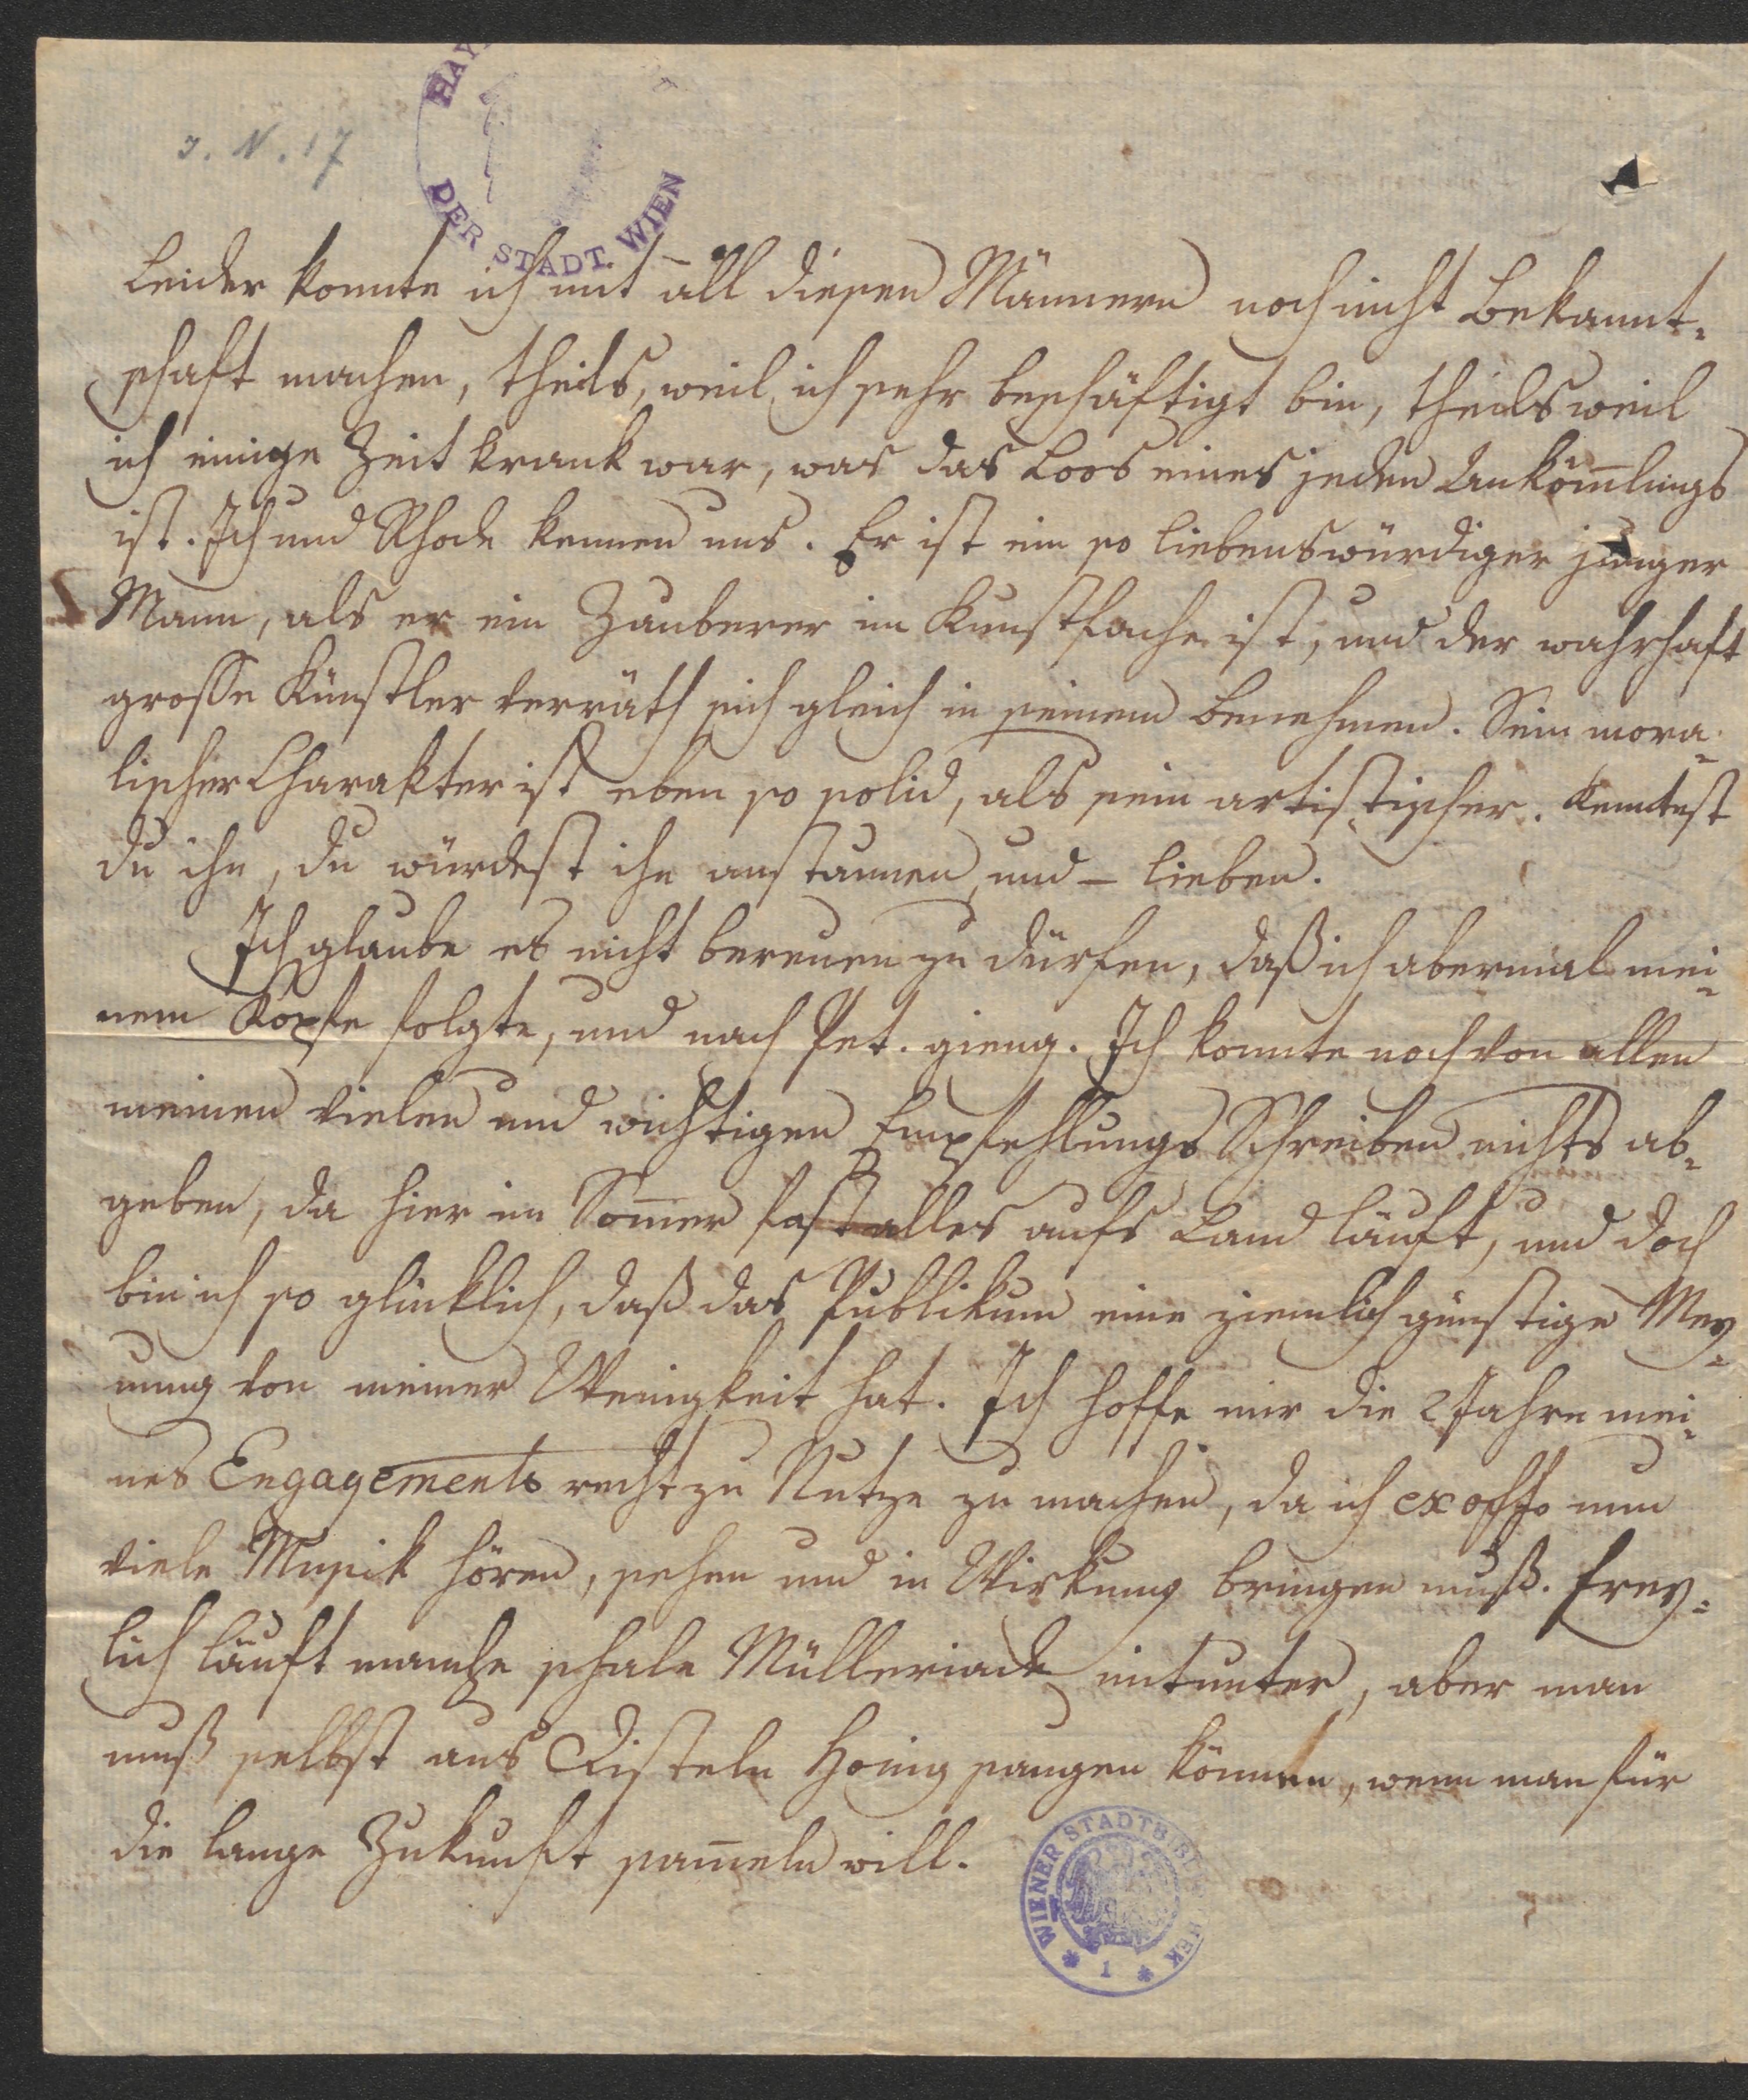 J. N. 17
HAY
DER STADT WIEN
Leider konnte ich mit all diesen Männern noch nicht Bekannt-
schaft machen, theils, weil ich sehr beschäftigt bin, theils weil
ich einige Zeit krank war, was das Loos eines jeden Ankömlings
ist. Ich und Rhode kennen uns. Er ist ein so liebenswürdiger junger
Mann, als er ein Zauberer im Kunstfache ist, und der wahrhaft
grosse Künstler verräth sich gleich in seinem Benehmen. Sein mora-
lischer Charakter ist eben so solid, als sein artistischer. Kenntest
du ihn, du würdest ihn anstaunen und – lieben.
Ich glaube es nicht bereuen zu dürfen, daß ich abermal mei-
nem Kopfe folgte, und nach Pet. gieng. Ich konnte noch von allen
meinen vielen und wichtigen Empfehlungs Schreiben nichts ab-
geben, da hier im Somer fast alles aufs Land läuft, und doch
bin ich so glücklich, daß das Publikum eine ziemlich günstige Mey-
nung von meiner Wenigkeit hat. Ich hoffe mir die 2 Jahre mei-
nes Engagements recht zu Nutze zu machen, da ich ex offo nun
viele Musik hören, sehen und in Wirkung bringen muß. Frey-
lich läuft manche schale Mülleriade mitunter, aber man
muß selbst aus Disteln Honig saugen können, wenn man für
die lange Zukunft sameln will.
WIENER STADTBIBLIOTHEK
* 1 *